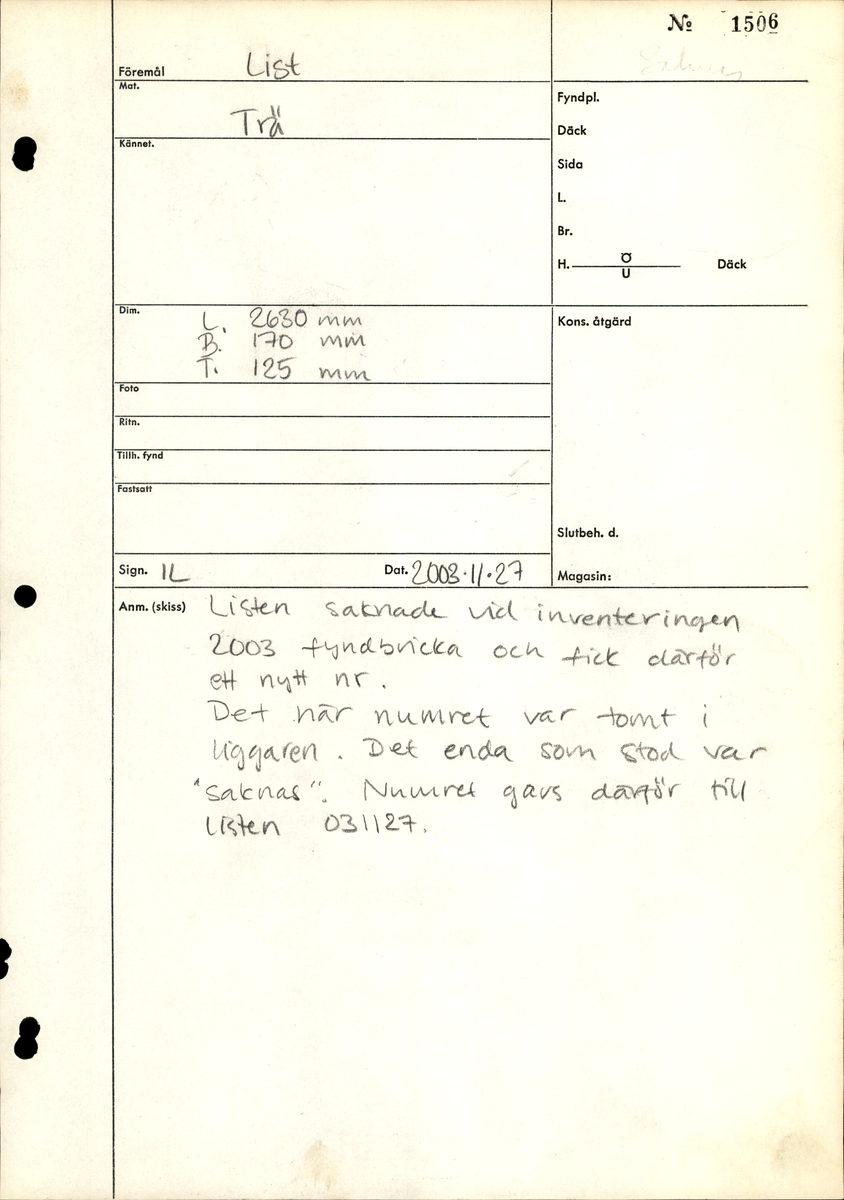 № 1506
Föremål List
Mat. Trä
Kännet.
Fyndpl.
Däck
Sida
L.
Br.
H. Ö
U Däck
Dim. L. 2630 mm
B. 170 mm
T. 125 mm
Kons. åtgärd
Foto
Ritn.
Tillh. fynd
Fastsatt
Slutbeh. d.
Sign. IL Dat. 2003.11.27
Magasin:
Anm. (skiss) Listen saknade vid inventeringen
2003 fyndbricka och fick därför
ett nytt nr.
Det här numret var tomt i
liggaren. Det enda som stod var
"saknas". Numret gavs därför till
listen 031127.